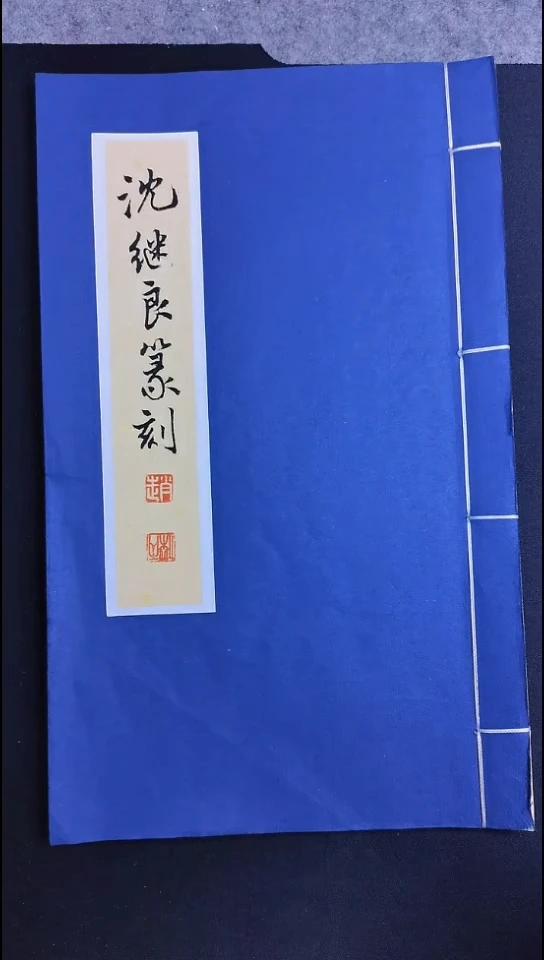 沈继良篆刻
趙